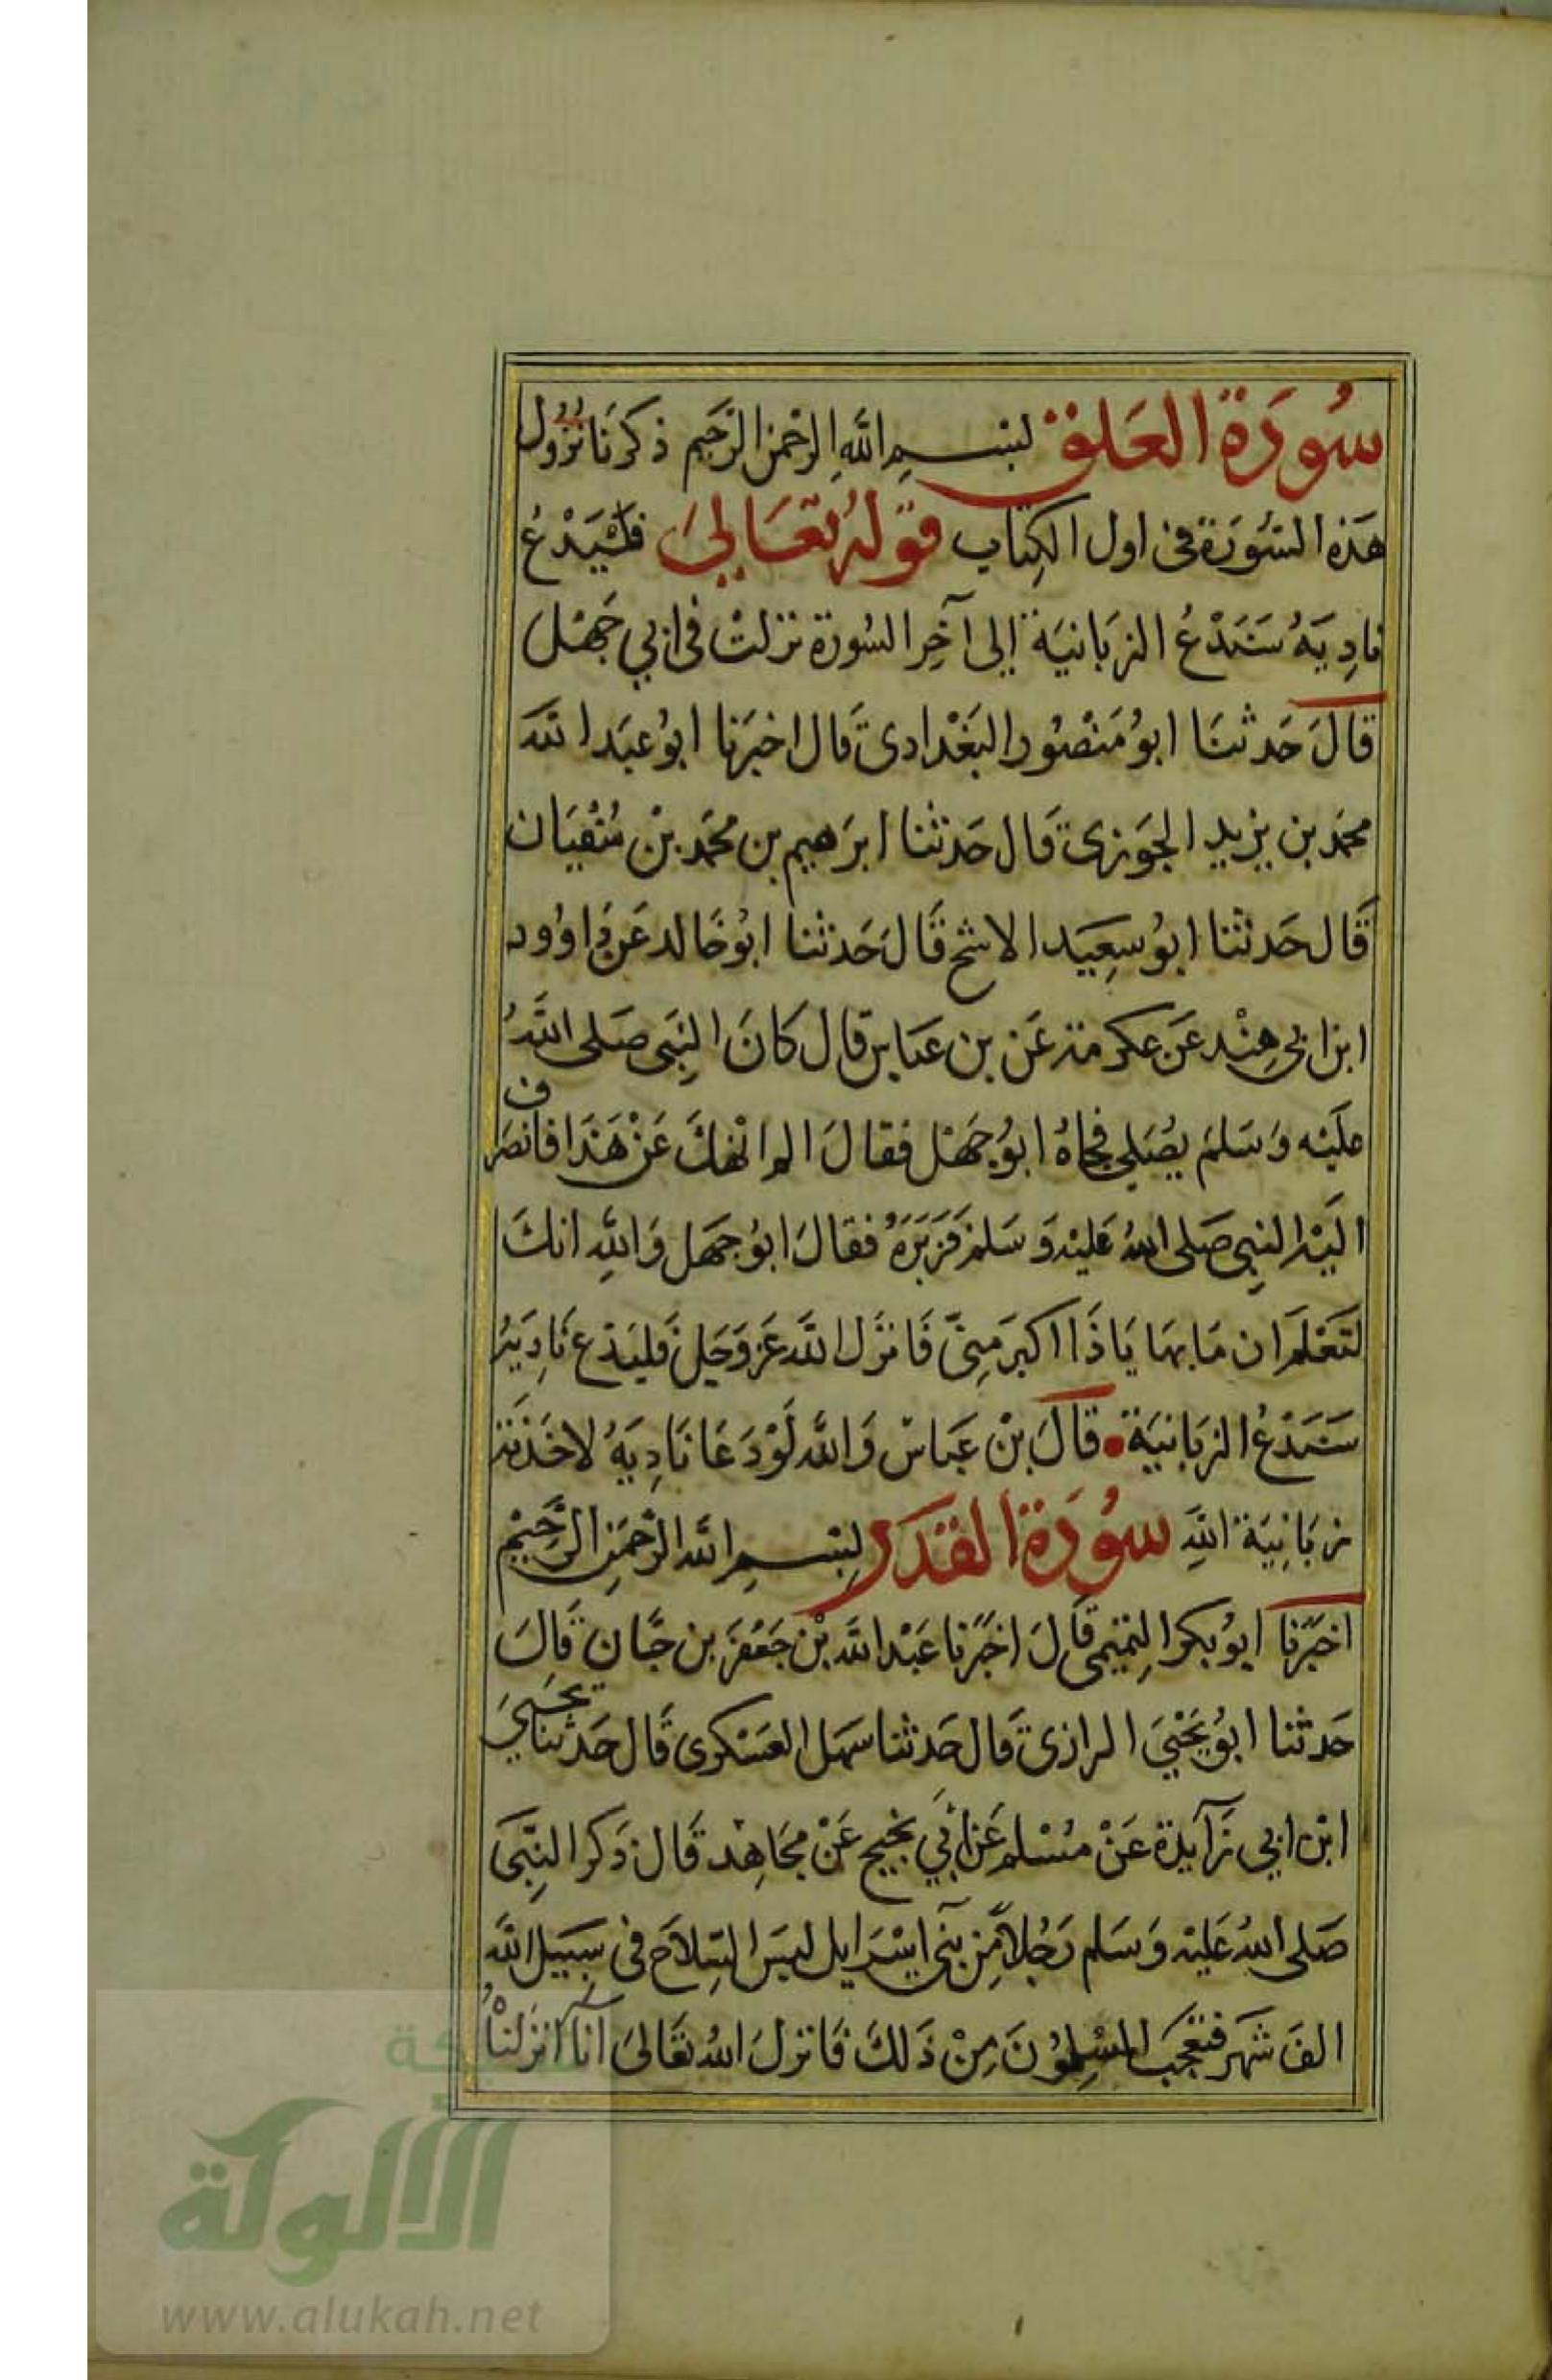 سُورَة العَلق بسم اللَّهِ الرحمن الرَّحيم ذكرنَا نُزُول
هَذه السُّورَة فى اول الكِتاب قوله تعَالىَ فليَدْعُ
نادِيَهُ سَنَدْعُ الزبَانيَة إلى آخِر السُورة نزلتْ فى ابي جَهْل
قالَ حَدثنَا ابوُ مَنصُور البَغْدادى قَال اخبَرنا ابوُ عبَد الله
محمَد بن يزيد الجوَزى قَال حَدثنا ابرَهيم بن محمَّد بنْ سُفيَان
قَال حَدثنا ابوُ سعِيَد الاشج قَالَ حَدثنا ابوُ خَالد عَن دَاوُود
ابن ابى هِنْد عَن عكرمة عَن بن عَباس قال كانَ النِبَى صَلى اللَّهُ
علَيْه وَسَلمَ يصُلي فجاهُ ابوُ جهْل فقالَ الم انْهكَ عَنْ هَذَا فانصَرف
اليْه النبِى صَلى اللهُ عَليْه وَسَلمْ فَزَبَرَهُ فقالَ ابوُ جهَل وَاللهِ انكَ
لتَعْلَم ان مَا بهَا يَا ذَا اكبرَ مِنىّ فَانزَل الله عَز وَجَل فَليَدْع نَادِيَهُ
سَنَدْعُ الزبَانيَة قالَ بنْ عَباس وَالله لَوْ دَعَا نَادِيَهُ لاخذَته
زبَانِيَة اللهِ سوُرَة القدَر بِسْم اللَّه الرحمَنِ الرَّحِيْم
اخبَرنا ابوُ بكر التميمى قَالَ اخبَرنا عَبْد الله بْن جَعْفَر بن حَبَّان قَالَ
حَدثنا ابوُ يَحْيَ الرازى قَال حَدثنا سَهل العَسْكرى قَال حَدثنا يحيىَ
ابْن ابي زَآيدة عَنْ مُسْلم عَن ابي نجيح عَنْ مجَاهِد قَال ذَكر النِّبىَ
صَلى اللهُ عَليْه وَسَلم رَجُلاً مِّن بَنى اسْرَايل لبسَ السِلاَح فى سَبيَل اللَّه
الفَ شَهَر فتعَجَب المسْلِموُنَ مِنْ ذَلكَ فَانزلَ اللهُ تعَالىَ انآ آنزَلناهُ
شبكة
الألوكة
www.alukah.net